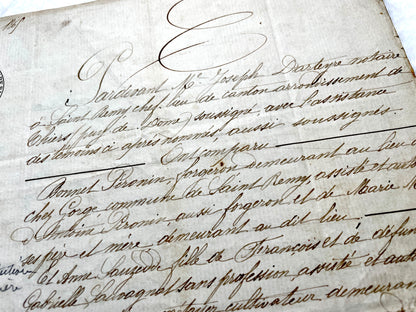 Pardevant Me Joseph Darleyre notaire
à Saint Remy chef lieu de canton arrondissement de
Thiers (puy de Dome) soussigné, avec l'assistance
des témoins ci après nommés aussi soussignés.
Ont comparu
Bonnet Peronin, forgeron demeurant au lieu
chez Gorge commune de Saint Remy, assisté et
d'Antoine Peronin aussi forgeron et de Marie
ses père et mère demeurant au dit lieu.
Et Anne Sauzedde fille de François et de défun
Gabrielle Salvagnat sans profession assistée et auto
cultivateur demeurant